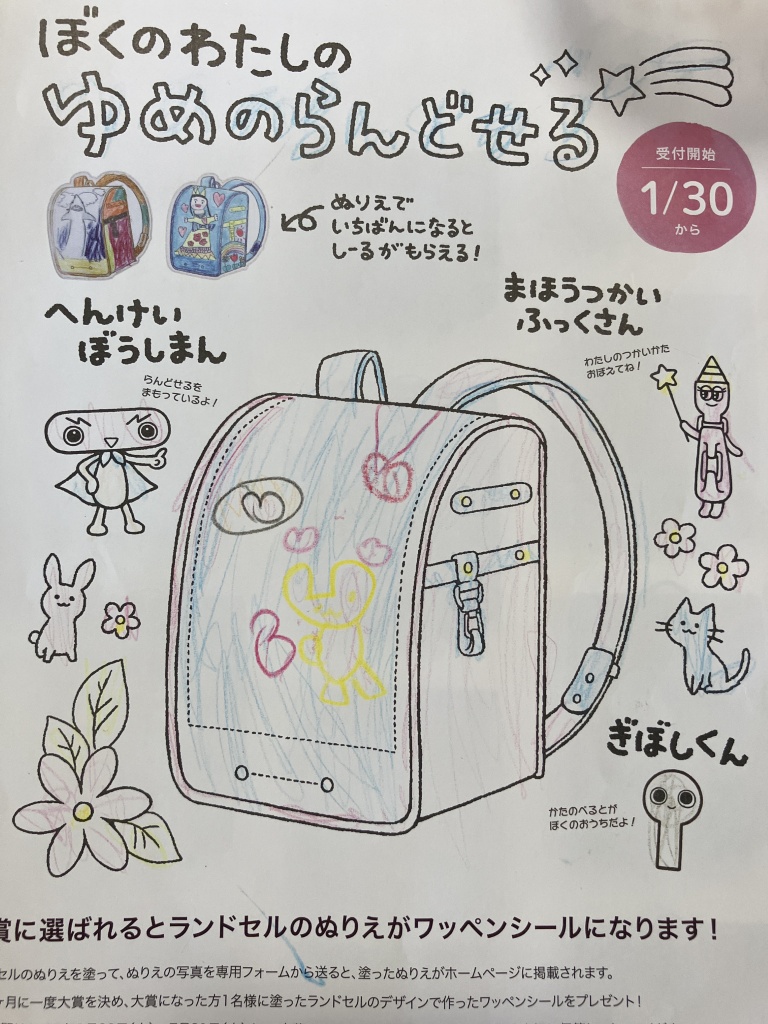 ぼくのわたしの
ゆめのらんどせる
受付開始
1/30
から
ぬりえで
いちばんになると
しーるがもらえる!
へんけい
ぼうしまん
らんどせるを
まもっているよ!
まほうつかい
ふっくさん
わたしのつかいかた
おぼえてね!
ぎぼしくん
かたのべるとが
ぼくのおうちだよ!
賞に選ばれるとランドセルのぬりえがワッペンシールになります!
セルのぬりえを塗って、ぬりえの写真を専用フォームから送ると、塗ったぬりえがホームページに掲載されます。
ヶ月に一度大賞を決め、大賞になった方1名様に塗ったランドセルのデザインで作ったワッペンシールをプレゼント!